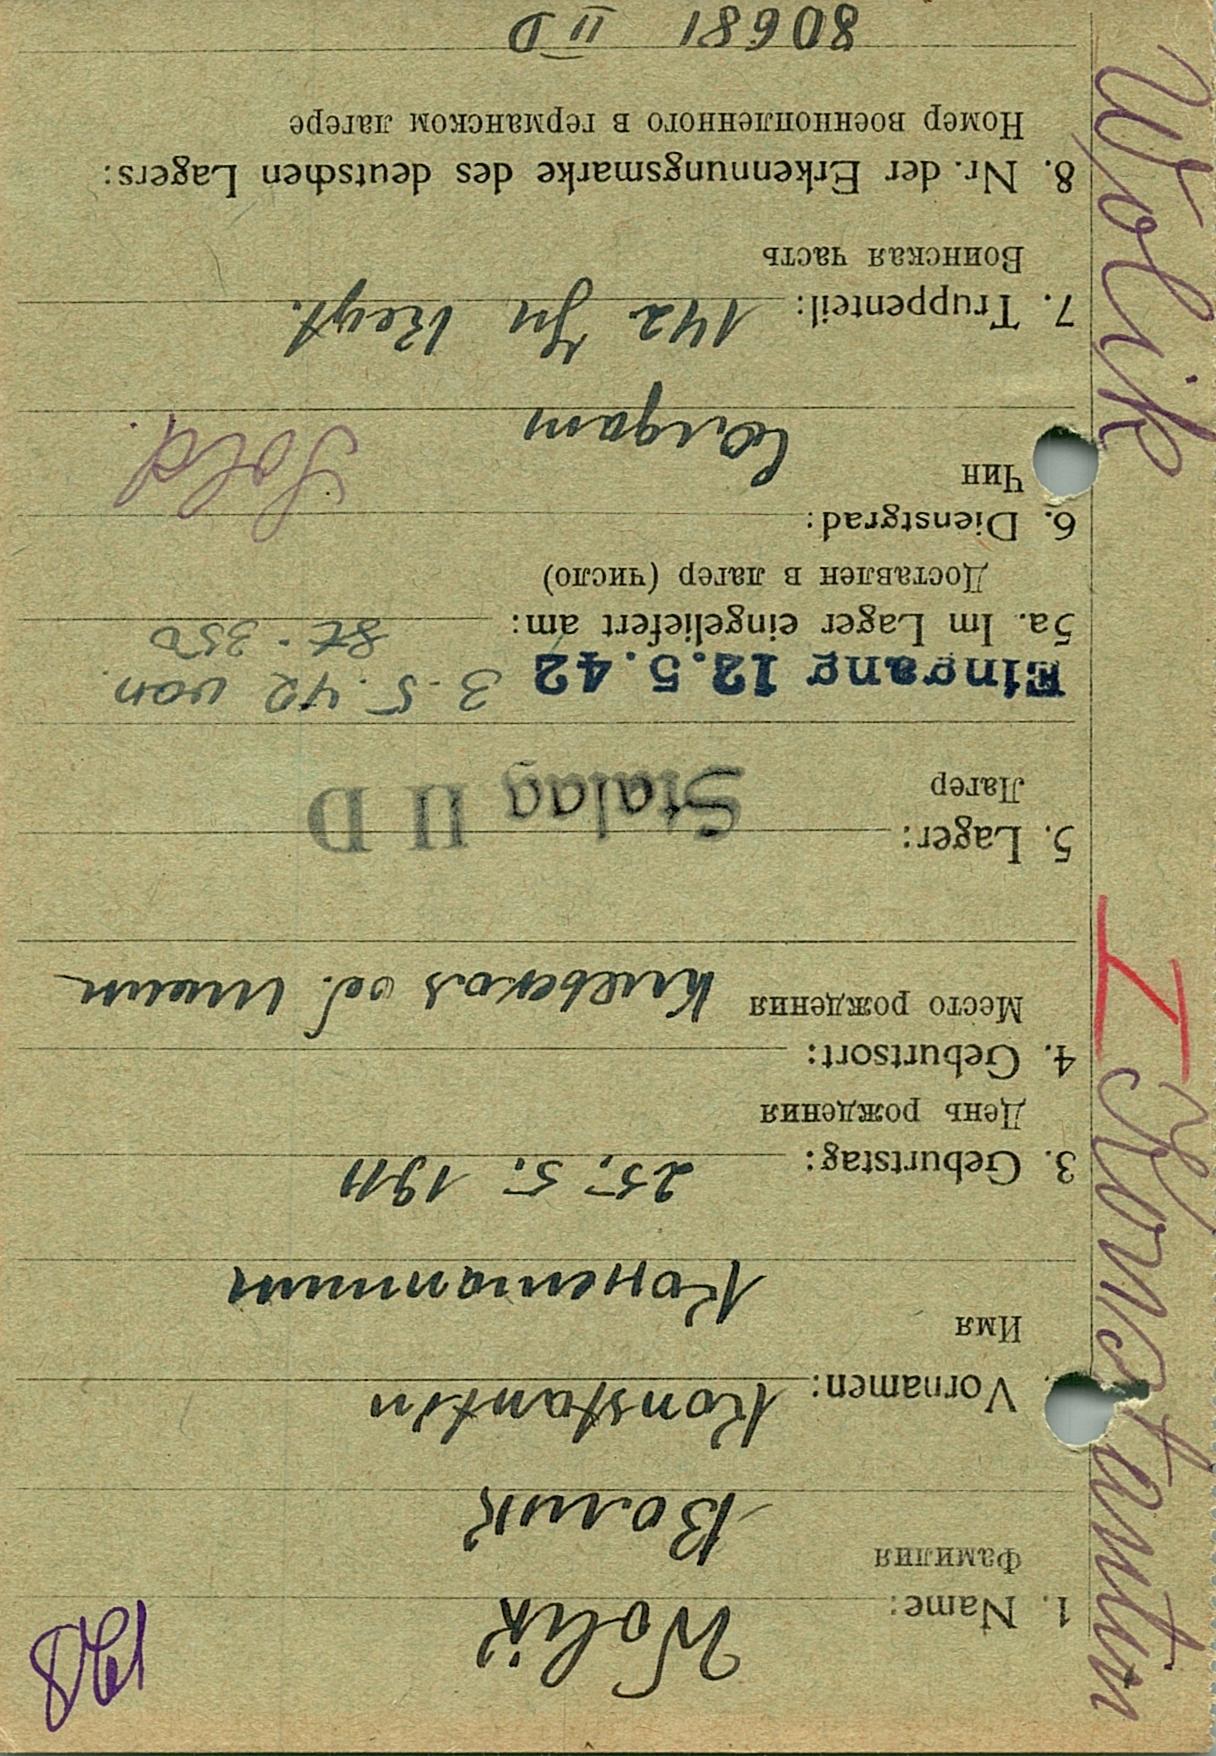 128
Wolik
1. Name:
Фамилия
Волик
Konstantin
Vornamen:
Имя
Константин
25. 5. 1911
3. Geburtstag:
День рождения
4. Geburtsort:
Место рождения Киевская об.
Stalag II D
5. Lager:
Лагер
Eingang 12.5.42 3.5.42 von
St. 350
5a. Im Lager eingeliefert am:
Доставлен в лагер (число)
6. Dienstgrad:
Чин
Sold.
Солдат
7. Truppenteil: 142 Regt.
Воинская часть
8. Nr. der Erkennungsmarke des deutschen Lagers:
Номер военнопленного в германском лагере
80681 II D
Wolik I Konstantin